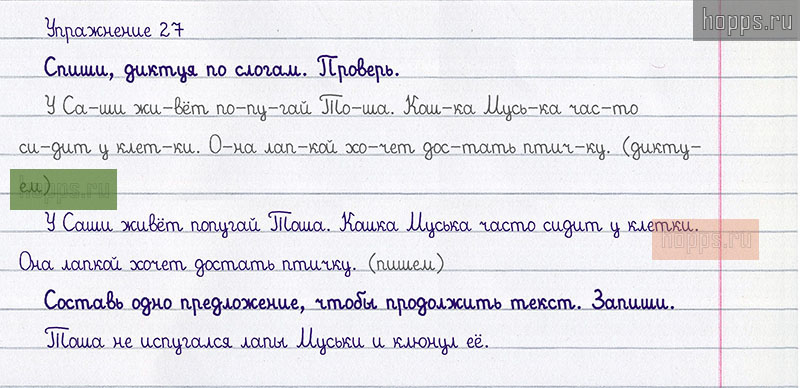 hopps.ru
Упражнение 27
Спиши, диктуя по слогам. Проверь.
У Са-ши жи-вёт по-пу-гай То-ша. Кош-ка Мусь-ка час-то
си-дит у клет-ки. О-на лап-кой хо-чет дос-тать птич-ку. (дикту-
ем)
hopps.ru
У Саши живёт попугай Тоша. Кошка Муська часто сидит у клетки.
hopps.ru
Она лапкой хочет достать птичку. (пишем)
Составь одно предложение, чтобы продолжить текст. Запиши.
Тоша не испугался лапы Муськи и клюнул её.